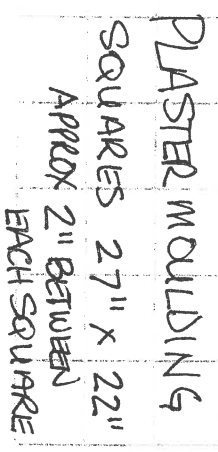 PLASTER MOULDING
SQUARES 27" x 22"
APPROX 2" BETWEEN
EACH SQUARE